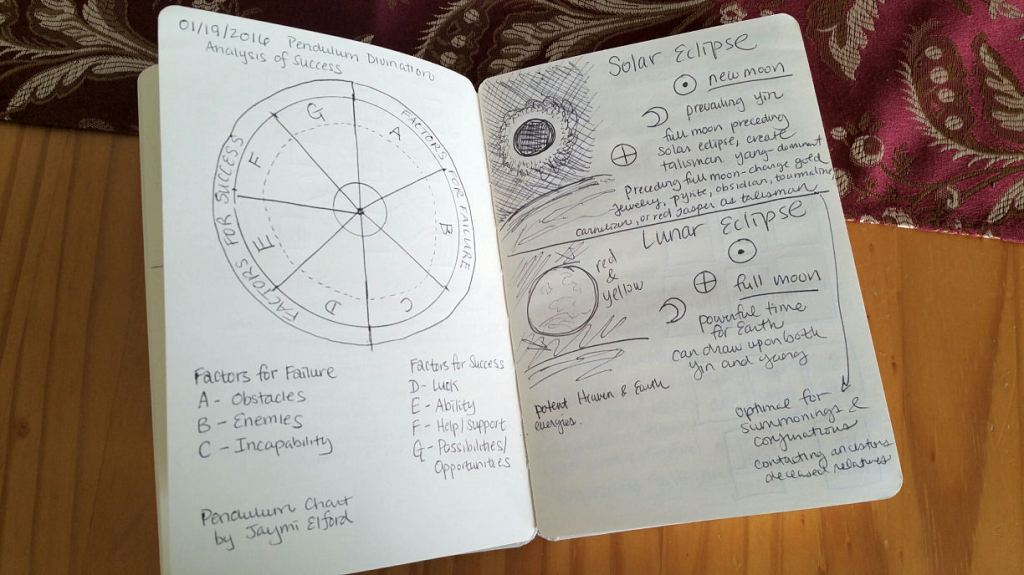 01/19/2016 Pendulum Divination
Analysis of Success
FACTORS FOR SUCCESS
FACTORS FOR FAILURE
G
A
F
B
E
D
C
Factors for Failure
A - Obstacles
B - Enemies
C - Incapability
Factors for Success
D - Luck
E - Ability
F - Help/Support
G - Possibilities/
Opportunities
Pendulum Chart
by Jaymi Elford
Solar Eclipse
new moon
prevailing yin
full moon preceding
solar eclipse, create
talisman yang-dominant
Preceding full moon-change gold
jewelry, pyrite, obsidian, tourmaline,
carnelian, or red jasper as talisman
Lunar Eclipse
red
&
yellow
full moon
powerful time
for Earth
can draw upon both
yin and yang
potent Heaven & Earth
energies.
optimal for
summonings &
conjurations
contacting ancestors
deceased relatives